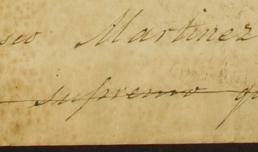 sco Martinez
supremo g